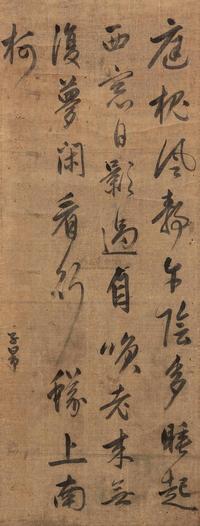 庭槐風静午陰多睡起
西窓日影過自嘆老来無
復夢閑看行蟻上南
柯
子昂